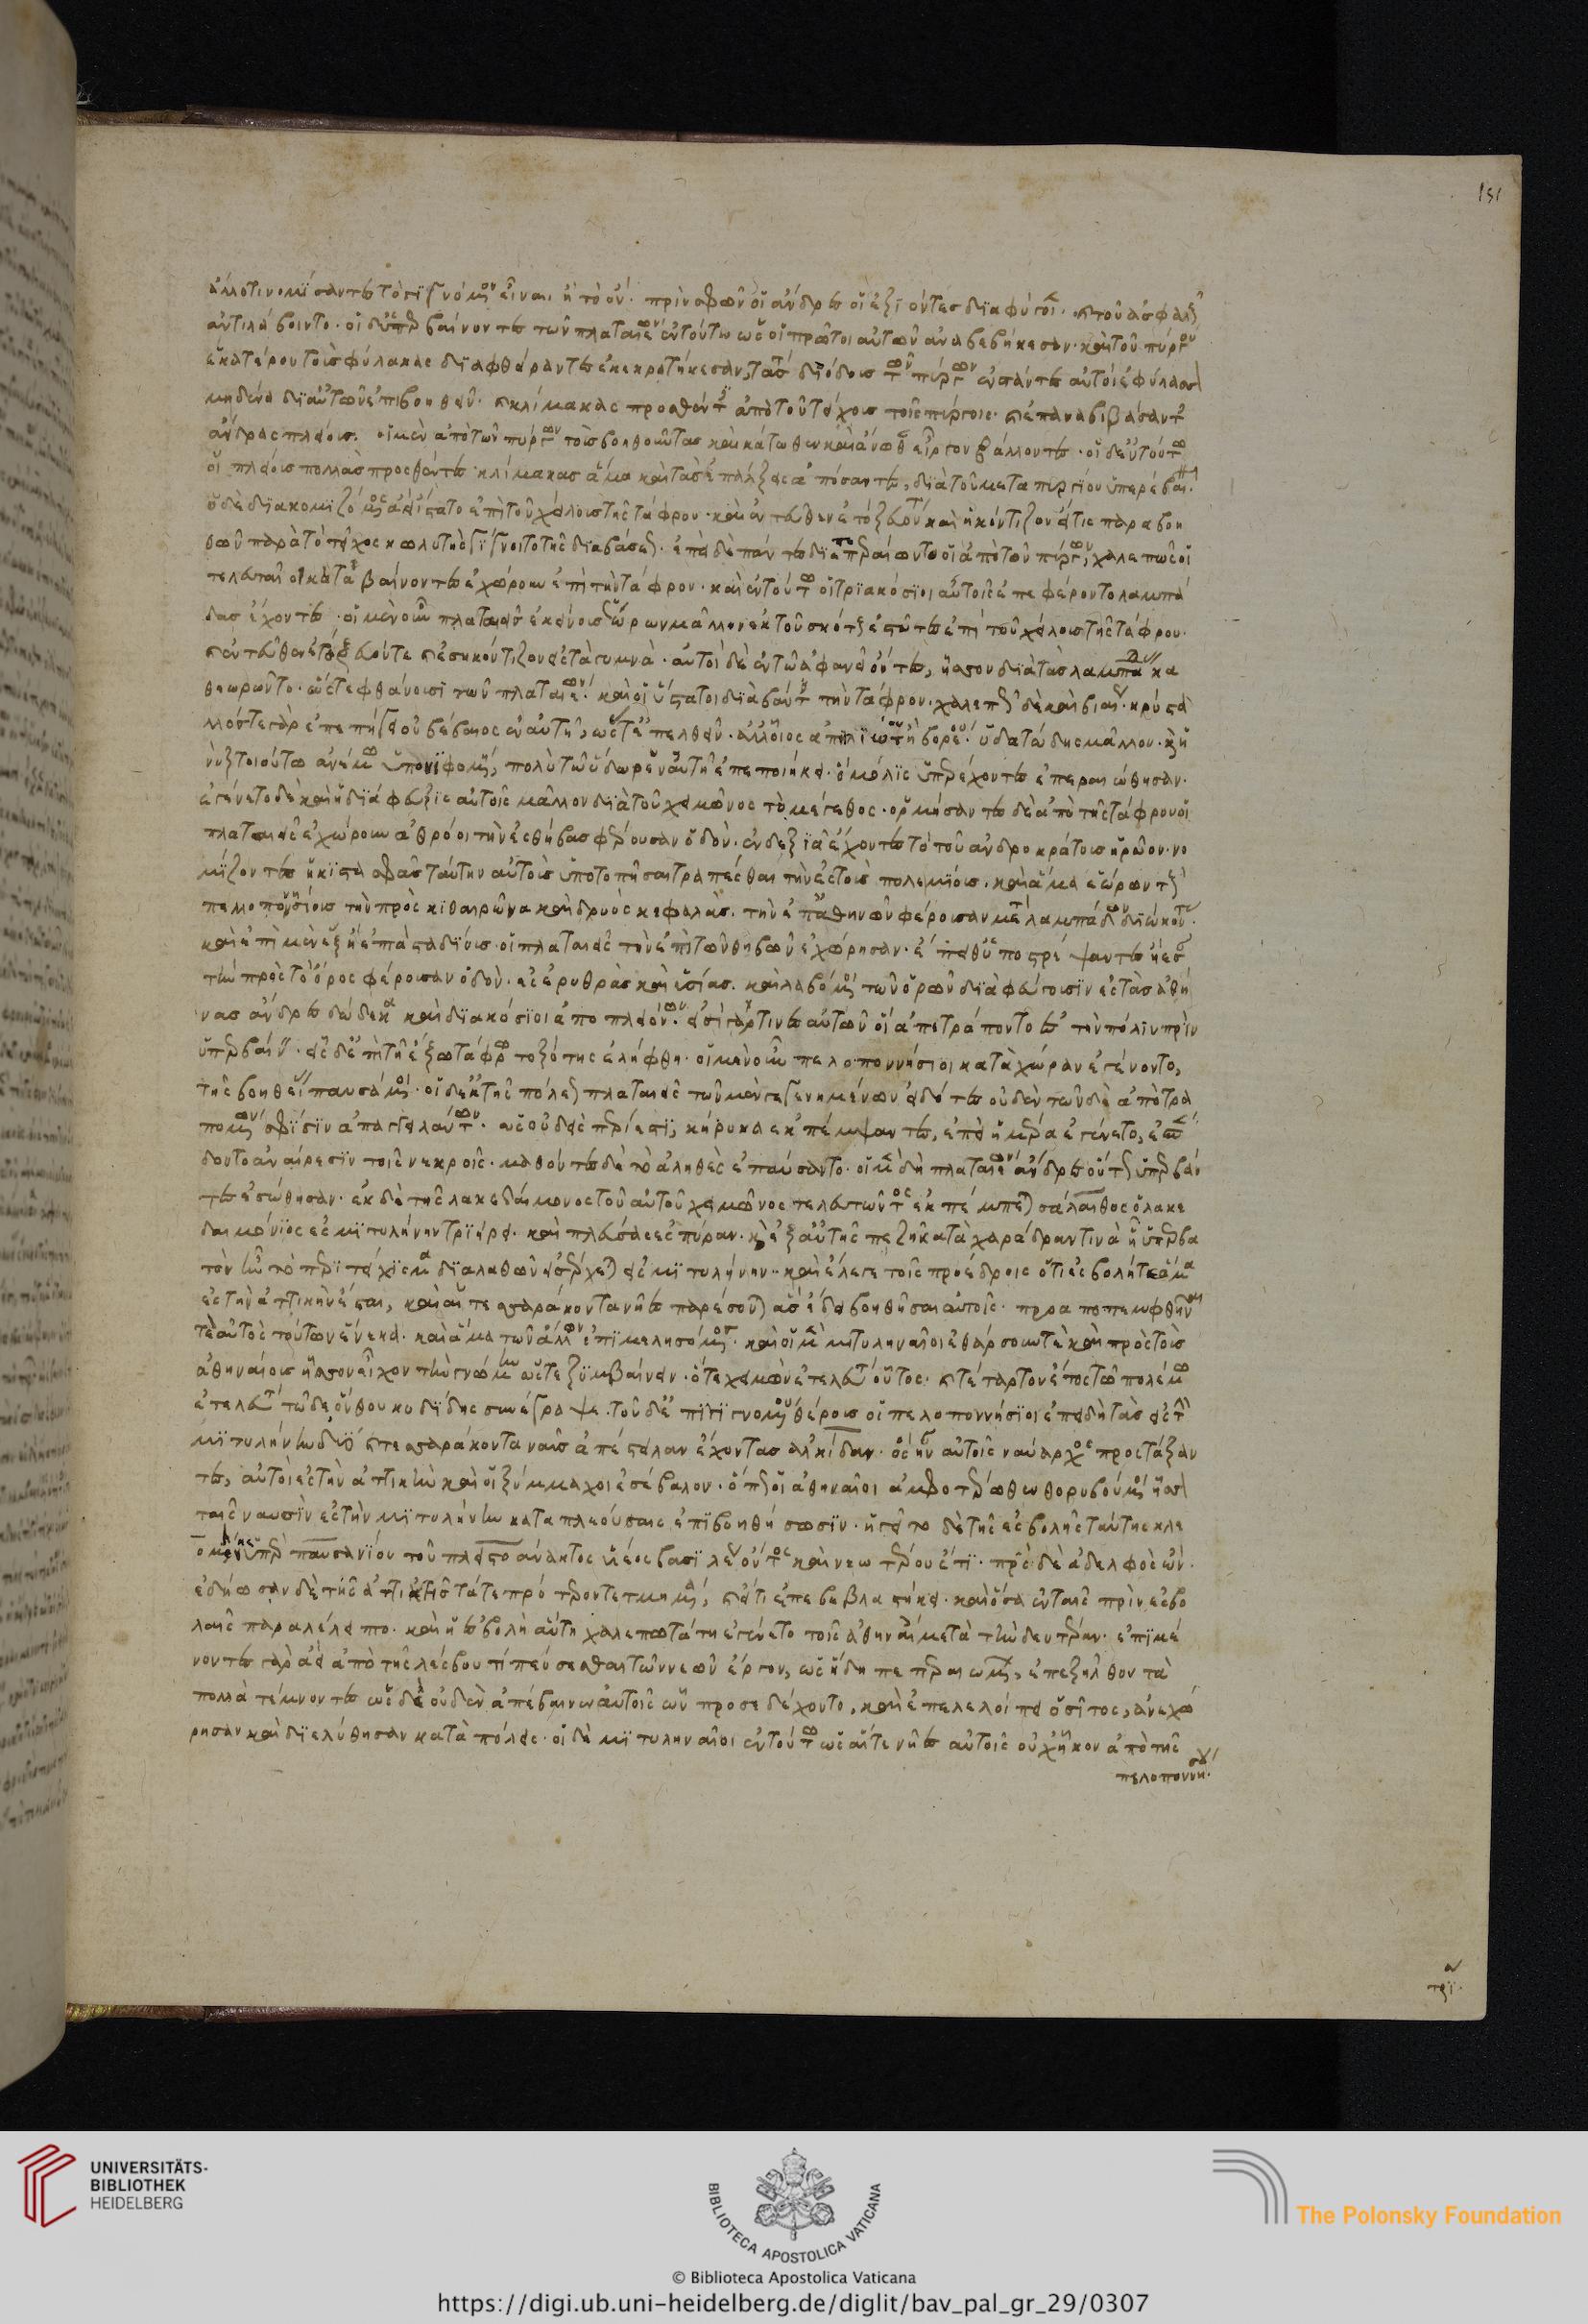 151
ἄλλο τι νομίσαντες τὸ γιγνόμενον εἶναι ἢ τὸ ὄν. πρὶν σφῶν οἱ ἄνδρες οἱ ἐξιόντες διαφύγοιεν. καὶ τοῦ ἀσφαλοῦς
ἀντιλάβοιντο. οἱ δ' ὑπερβαίνοντες τῶν πλαταιέων ἐν τούτω ὡς οἱ πρῶτοι αὐτῶν ἀναβεβήκεσαν. καὶ τοῦ πύργου
ἑκατέρου τοὺς φύλακας διαφθείραντες ἐκεκρατήκεσαν, τάς τε διόδους τῶν πύργων ἐνστάντες αὐτοὶ ἐφύλασσον
μηδένα δι' αὐτῶν ἐπιβοηθεῖν. καὶ κλίμακας προσθέντες ἀπὸ τοῦ τείχους τοῖς πύργοις. καὶ ἐπαναβιβάσαντες
ἄνδρας πλείους. οἱ μὲν ἀπὸ τῶν πύργων τοὺς βοηθοῦντας καὶ κάτωθεν καὶ ἄνωθεν εἶργον βάλλοντες. οἱ δ' ἐν τούτω
οἱ πλείους πολλὰς προσθέντες κλίμακας ἅμα καὶ τὰς ἐπάλξεις ἀπώσαντες, διὰ τοῦ μεταπυργίου ὑπερέβαινον.
ὁ δὲ διακομιζόμενος ἀεὶ ἵστατο ἐπὶ τοῦ χείλους τῆς τάφρου. καὶ ἐντεῦθεν ἐτόξευόν τε καὶ ἠκόντιζον εἴ τις παραβοη
θῶν παρὰ τὸ τεῖχος κωλυτὴς γίγνοιτο τῆς διαβάσεως. ἐπεὶ δὲ πάντες διεπεπεραίωντο οἱ ἀπὸ τῶν πύργων, χαλεπῶς οἱ
τελευταῖοι καταβαίνοντες ἐχώρουν ἐπὶ τὴν τάφρον. καὶ ἐν τούτω οἱ τριακόσιοι αὐτοῖς ἐπεφέροντο λαμπά
δας ἔχοντες. οἱ μὲν οὖν πλαταιεῖς ἐκείνους ἑώρων μᾶλλον ἐκ τοῦ σκότους ἑστῶτες ἐπὶ τοῦ χείλους τῆς τάφρου.
καὶ ἐντεῦθεν ἐτόξευόν τε καὶ ἐσηκόντιζον ἐς τὰ γυμνὰ. αὐτοὶ δὲ ἐν τῷ ἀφανεῖ ὄντες, ἧσσον διὰ τὰς λαμπάδας κα
θεωρῶντο. ὥστε φθάνουσι τῶν πλαταιέων καὶ οἱ ὕστατοι διαβάντες τὴν τάφρον. χαλεπῶς δὲ καὶ βιαίως. κρύστα
λλός τε γὰρ ἐπεπήγει οὐ βέβαιος ἐν αὐτῆ, ὥστ' ἐπελθεῖν. ἀλλ' οἷος ἀπηλιώτου ἢ βορέου. ὑδατώδης μᾶλλον. καὶ ἡ
νὺξ τοιούτω ἀνέμω ὑπονιφομένη, πολὺ τὸ ὕδωρ ἐν αὐτῆ ἐπεποιήκει. ὃ μόλις ὑπερέχοντες ἐπεραιώθησαν.
ἐγένετο δὲ καὶ ἡ διάφευξις αὐτοῖς μᾶλλον διὰ τοῦ χειμῶνος τὸ μέγεθος. ὁρμήσαντες δὲ ἀπὸ τῆς τάφρου οἱ
πλαταιεῖς ἐχώρουν ἀθρόοι τὴν ἐς θήβας φέρουσαν ὁδὸν. ἐν δεξιᾶ ἔχοντες τὸ τοῦ ἀνδροκράτους ἡρῶον. νο
μίζοντες ἥκιστα σφᾶς ταύτην αὐτοὺς ὑποτοπῆσαι τραπέσθαι τὴν ἐς τοὺς πολεμίους. καὶ ἅμα ἑώρων τοὺς
πελοποννησίους τὴν πρὸς κιθαιρῶνα καὶ δρυὸς κεφαλὰς. τὴν ἐπ' ἀθηνῶν φέρουσαν μετὰ λαμπάδων διώκοντας.
καὶ ἐπὶ μὲν ἓξ ἢ ἑπτὰ σταδίους. οἱ πλαταιεῖς τὴν ἐπὶ τῶν θηβῶν ἐχώρησαν. ἔπειθ' ὑποστρέψαντες ἤεσαν
τὴν πρὸς τὸ ὄρος φέρουσαν ὁδὸν. ἐς ἐρυθρὰς καὶ ὑσίας. καὶ λαβόμενοι τῶν ὀρῶν διαφεύγουσιν ἐς τὰς ἀθή
νας ἄνδρες δώδεκα καὶ διακόσιοι ἀπὸ πλειόνων. εἰσὶ γάρ τινες αὐτῶν οἳ ἀπετράποντο ἐς τὴν πόλιν πρὶν
ὑπερβαίνειν. εἷς δ' ἐπὶ τῆ ἔξω τάφρω τοξότης ἐλήφθη. οἱ μὲν οὖν πελοποννήσιοι κατὰ χώραν ἐγένοντο,
τῆς βοηθείας παυσάμενοι. οἱ δ' ἐκ τῆς πόλεως πλαταιεῖς τῶν μὲν γεγενημένων εἰδότες οὐδὲν τῶν δὲ ἀποτρα
πομένων σφίσιν ἀπαγγειλάντων. ὡς οὐδεὶς περίεστι, κήρυκα ἐκπέμψαντες, ἐπεὶ ἡμέρα ἐγένετο, ἐσπέν
δοντο ἀναίρεσιν τοῖς νεκροῖς. μαθόντες δὲ τὸ ἀληθὲς ἐπαύσαντο. οἱ μὲν δὴ πλαταιέων ἄνδρες οὕτως ὑπερβάν
τες ἐσώθησαν. ἐκ δὲ τῆς λακεδαίμονος τοῦ αὐτοῦ χειμῶνος τελευτῶντος ἐκπέμπεται σάλαιθος ὁ λακε
δαιμόνιος ἐς μιτυλήνην τριήρει. καὶ πλεύσας ἐς πύραν. καὶ ἐξ αὐτῆς πεζῆ κατὰ χαράδραν τινὰ ἧ ὑπερβα
τὸν ἦν τὸ περιτείχισμα διαλαθὼν ἐσέρχεται ἐς μιτυλήνην. καὶ ἔλεγε τοῖς προέδροις ὅτι ἐσβολή τε ἅμα
ἐς τὴν ἀττικὴν ἔσται, καὶ αἱ τεσσαράκοντα νῆες παρέσονται ἃς ἔδει βοηθῆσαι αὐτοῖς. προαποπεμφθῆναί
τε αὐτὸς τούτων ἕνεκα. καὶ ἅμα τῶν ἄλλων ἐπιμελησόμενος. καὶ οἱ μὲν μιτυληναῖοι ἐθάρσουν τε καὶ πρὸς τοὺς
ἀθηναίους ἧσσον εἶχον τὴν γνώμην ὥστε ξυμβαίνειν. ὅ τε χειμὼν ἐτελεύτα οὗτος. καὶ τέταρτον ἔτος τῶ πολέμω
ἐτελεύτα τῶδε ὃν θουκυδίδης συνέγραψε. τοῦ δ' ἐπιγιγνομένου θέρους οἱ πελοποννήσιοι ἐπειδὴ τὰς ἐς τὴν
μιτυλήνην δύο καὶ τεσσαράκοντα ναῦς ἀπέστειλαν ἔχοντας ἀλκίδαν. ὃς ἦν αὐτοῖς ναύαρχος προστάξαν
τες, αὐτοὶ ἐς τὴν ἀττικὴν καὶ οἱ ξύμμαχοι ἐσέβαλον. ὅπως οἱ ἀθηναῖοι ἀμφοτέρωθεν θορυβούμενοι ἧσσον
ταῖς ναυσὶν ἐς τὴν μιτυλήνην καταπλεούσαις ἐπιβοηθήσωσιν. ἡγεῖτο δὲ τῆς ἐσβολῆς ταύτης κλε
ομένης ὑπὲρ παυσανίου τοῦ πλειστοάνακτος υἱέος βασιλέως ὄντος καὶ νεωτέρου ἔτι. πατρὸς δὲ ἀδελφὸς ὤν.
ἐδήωσαν δὲ τῆς ἀττικῆς τά τε πρότερον τετμημένα, καὶ εἴ τι ἐπεβεβλαστήκει. καὶ ὅσα ἐν ταῖς πρὶν ἐσβο
λαῖς παρελέλειπτο. καὶ ἡ ἐσβολὴ αὕτη χαλεπωτάτη ἐγένετο τοῖς ἀθηναίοις μετὰ τὴν δευτέραν. ἐπιμέ
νοντες γὰρ ἀεὶ ἀπὸ τῆς λέσβου τί πεύσεσθαι τῶν νεῶν ἔργον, ὡς ἤδη πεπεραιωμένων, ἐπεξῆλθον τὰ
πολλὰ τέμνοντες ὡς δὲ οὐδὲν ἀπέβαινεν αὐτοῖς ὧν προσεδέχοντο, καὶ ἐπελελοίπει ὁ σῖτος, ἀνεχώ
ρησαν καὶ διελύθησαν κατὰ πόλεις. οἱ δὲ μιτυληναῖοι ἐν τούτω ὡς αἵ τε νῆες αὐτοῖς οὐχ ἧκον ἀπὸ τῆς
πελοποννήσου.
UNIVERSITÄTS-
BIBLIOTHEK
HEIDELBERG
BIBLIOTECA APOSTOLICA VATICANA
The Polonsky Foundation
© Biblioteca Apostolica Vaticana
https://digi.ub.uni-heidelberg.de/diglit/bav_pal_gr_29/0307